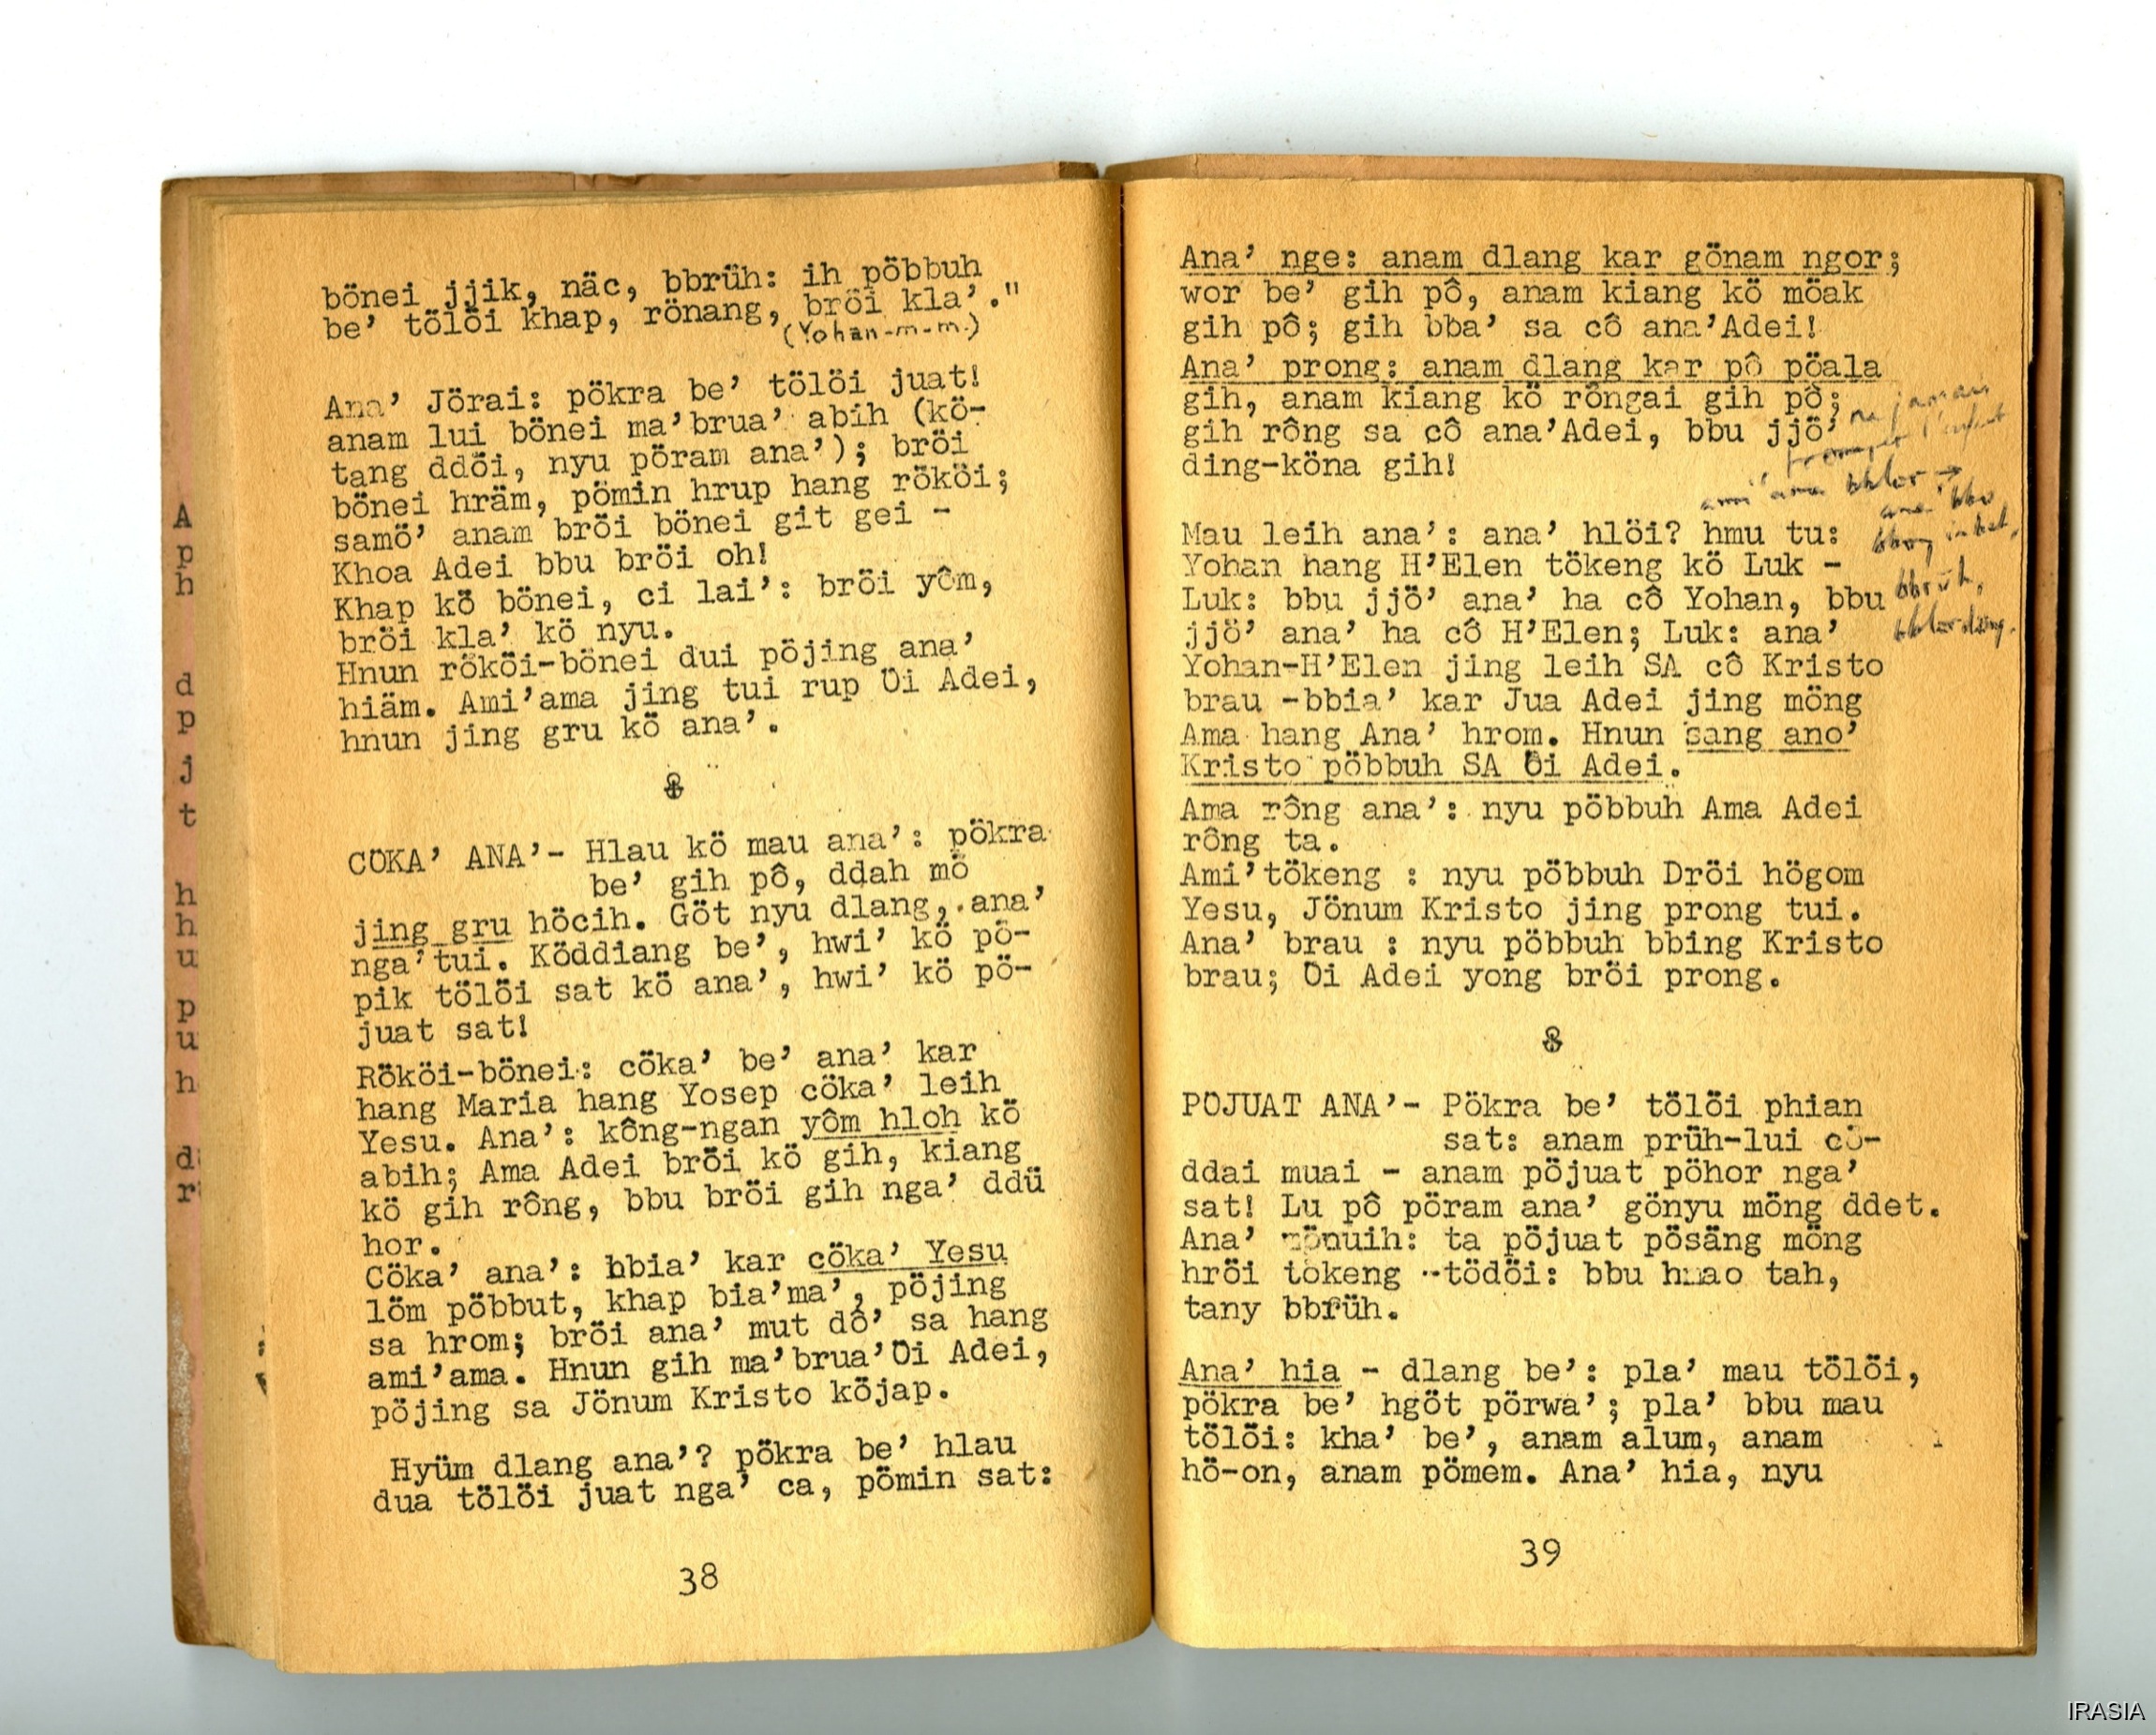 bönei jjik, näc, bbrüh: ih pöbbuh
be’ tölöi khap, rönang, bröi kla’."
(Yohan-m-m.)
Ana’ Jörai: pökra be’ tölöi juat!
anam lui bönei ma’brua’ abih (kö-
tang ddöi, nyu pöram ana’); bröi
bönei hräm, pömin hrup hang rököi;
samö’ anam bröi bönei git gei -
Khoa Adei bbu bröi oh!
Khap kö bönei, ci lai’: bröi yôm,
bröi kla’ kö nyu.
Hnun rököi-bönei dui pöjing ana’
hiäm. Ami’ama jing tui rup Öi Adei,
hnun jing gru kö ana’.
CÖKA’ ANA’- Hlau kö mau ana’: pökra
be’ gih pô, ddah mö
jing gru höcih. Göt nyu dlang, ana’
nga’tui. Köddiang be’, hwi’ kö pö-
pik tölöi sat kö ana’, hwi’ kö pö-
juat sat!
Rököi-bönei: cöka’ be’ ana’ kar
hang Maria hang Yosep cöka’ leih
Yesu. Ana’: kông-ngan yôm hloh kö
abih; Ama Adei bröi kö gih, kiang
kö gih rông, bbu bröi gih nga’ ddü
hor.
Cöka’ ana’: bbia’ kar cöka’ Yesu
löm pöbbut, khap bia’ma’, pöjing
sa hrom; bröi ana’ mut dô’ sa hang
ami’ama. Hnun gih ma’brua’Öi Adei,
pöjing sa Jönum Kristo köjap.
Hyüm dlang ana’? pökra be’ hlau
dua tölöi juat nga’ ca, pömin sat:
38
Ana’ nge: anam dlang kar gönam ngor;
wor be’ gih pô, anam kiang kö möak
gih pô; gih bba’ sa cô ana’Adei!
Ana’ prong: anam dlang kar pô pöala
gih, anam kiang kö rôngai gih pô;
gih rông sa cô ana’Adei, bbu jjö’
ding-köna gih!
Mau leih ana’: ana’ hlöi? hmu tu:
Yohan hang H’Elen tökeng kö Luk -
Luk: bbu jjö’ ana’ ha cô Yohan, bbu
jjö’ ana’ ha cô H’Elen; Luk: ana’
Yohan-H’Elen jing leih SA cô Kristo
brau -bbia’ kar Jua Adei jing möng
Ama hang Ana’ hrom. Hnun sang ano’
Kristo pöbbuh SA Öi Adei.
Ama rông ana’: nyu pöbbuh Ama Adei
rông ta.
Ami’tökeng : nyu pöbbuh Dröi högom
Yesu, Jönum Kristo jing prong tui.
Ana’ brau : nyu pöbbuh bbing Kristo
brau; Öi Adei yong bröi prong.
PÖJUAT ANA’- Pökra be’ tölöi phian
sat: anam prüh-lui cö-
ddai muai - anam pöjuat pöhor nga’
sat! Lu pô pöram ana’ gönyu möng ddet.
Ana’ mönuih: ta pöjuat pösäng möng
hröi tökeng -tödöi: bbu hmao tah,
tany bbrüh.
Ana’ hia - dlang be’: pla’ mau tölöi,
pökra be’ hgöt pörwa’; pla’ bbu mau
tölöi: kha’ be’, anam alum, anam
hö-on, anam pömem. Ana’ hia, nyu
39
IRASIA